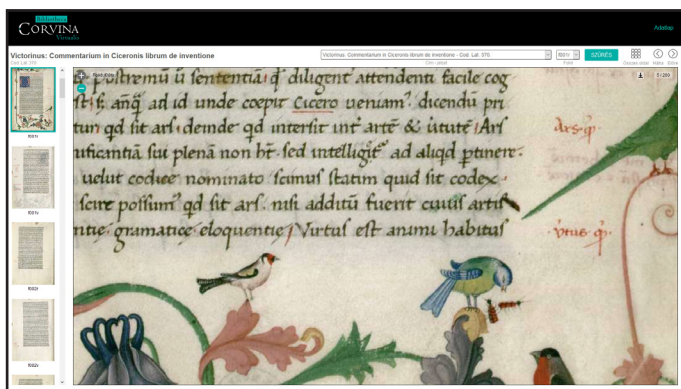 Bibliotheca
CORVINA
Virtualis
Adatlap
Victorinus: Commentarium in Ciceronis librum de inventione
Cod. Lat. 370.
Victorinus: Commentarium in Ciceronis librum de inventione - Cod. Lat. 370.
f001r
SZŰRÉS
Cím - jelzet
Fólió
Összes oldal
Hátra
Előre
5 / 209
f001r
f001v
f002r
f002v
postremū ū sententiā diligent attendenti facile cog
ad id unde coepit Cicero veniam dicendū pri
tum qd sit ars deinde qd intersit int artē & uirtutē Ars
nificantiā sui plenā non ht sed intelligit ad aliqd ptinere
uelut codice nominato scimus statim quid sit codex
scire possum qd sit ars nisi additū fuerit cuius artis
ntie gramatice eloquentie Virtus est animi habitus
Ars qd
Virtus qd